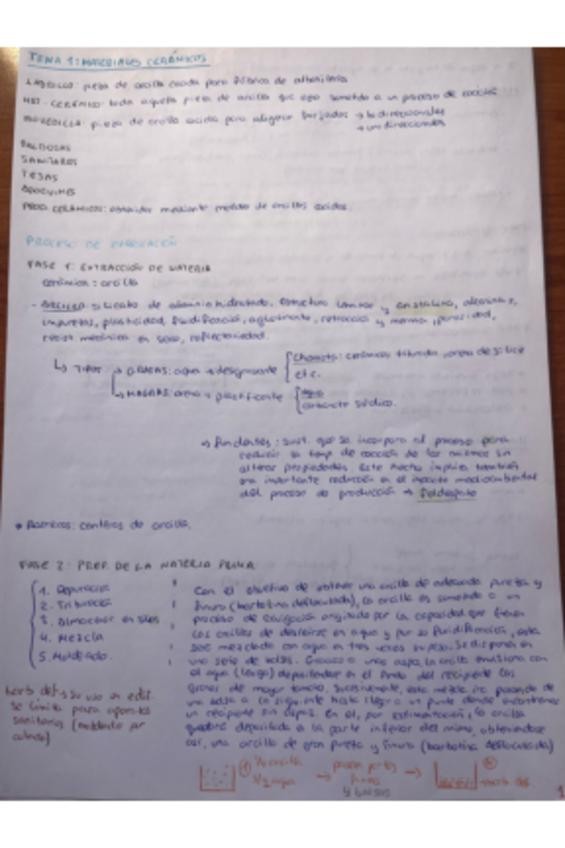 TEMA 1: MATERIALES CERÁMICOS
LADRILLO: pieza de arcilla cocida para fábrica de albañilería
MAT. CERÁMICO: toda aquella pieza de arcilla que haya sometido a un proceso de cocción
BOVEDILLA: pieza de arcilla cocida para aligerar forjados → bidireccionales
→ unidireccionales
BALDOSAS
SANITARIOS
TEJAS
PROD. CERÁMICOS: obtenidos mediante moldeo de arcillas cocidas.
PROCESO DE FABRICACIÓN
FASE 1: EXTRACCIÓN DE MATERIA
cerámica: arcilla
- ARCILLA: silicato de aluminio hidratado. Estructura laminar y cristalina,
impurezas, plasticidad, fluidificación, aglutinante, retracción y merma, porosidad,
resist mecánica en seco, refractariedad.
↳ TIPOS → GRASAS: agua → desgrasante { Chamota: cerámica triturada, arena de sílice
etc.
→ MAGRAS: arena → plastificante {
carbonato sódico.
→ Fundentes: sust. que se incorpora al proceso para
reducir la temp de cocción de las mismas sin
alterar propiedades. Este hecho implica también
una importante reducción en el impacto medioambiental
del proceso de producción → Feldespato
* Barreros: canteras de arcilla.
FASE 2: PREP. DE LA MATERIA PRIMA
1. Depuración
2. Trituración
3. Almacenar en silos
4. Mezcla
5. Moldeado.
Con el objetivo de obtener una arcilla de adecuada pureza y
finura (barbotina desfloculada), la arcilla es sometida a un
proceso de levigación originado por la capacidad que tienen
las arcillas de desleírse en agua y por su fluidificación, esta
se mezclada con agua en tres veces su peso. Se disponen en
una serie de balsas. Gracias a unas aspas, la arcilla emulsiona con
el agua (luego) depositándose en el fondo del recipiente los
granos de mayor tamaño. Sucesivamente, esta mezcla irá pasando de
una balsa a la siguiente hasta llegar a un punto donde encontramos
un recipiente sin aspas. En él, por sedimentación, la arcilla
quedará depositada a la parte inferior del mismo, obteniéndose
así, una arcilla de gran pureza y finura (barbotina desfloculada)
barb. def → su uso en edif.
se limita para aparatos
sanitarios (moldeado por
colado)
① arcilla
agua
→ pasan partes
finas
y balsas
→
barb. des.
1